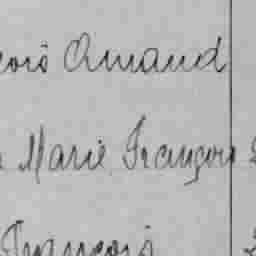 çois Amand
Marie François
François